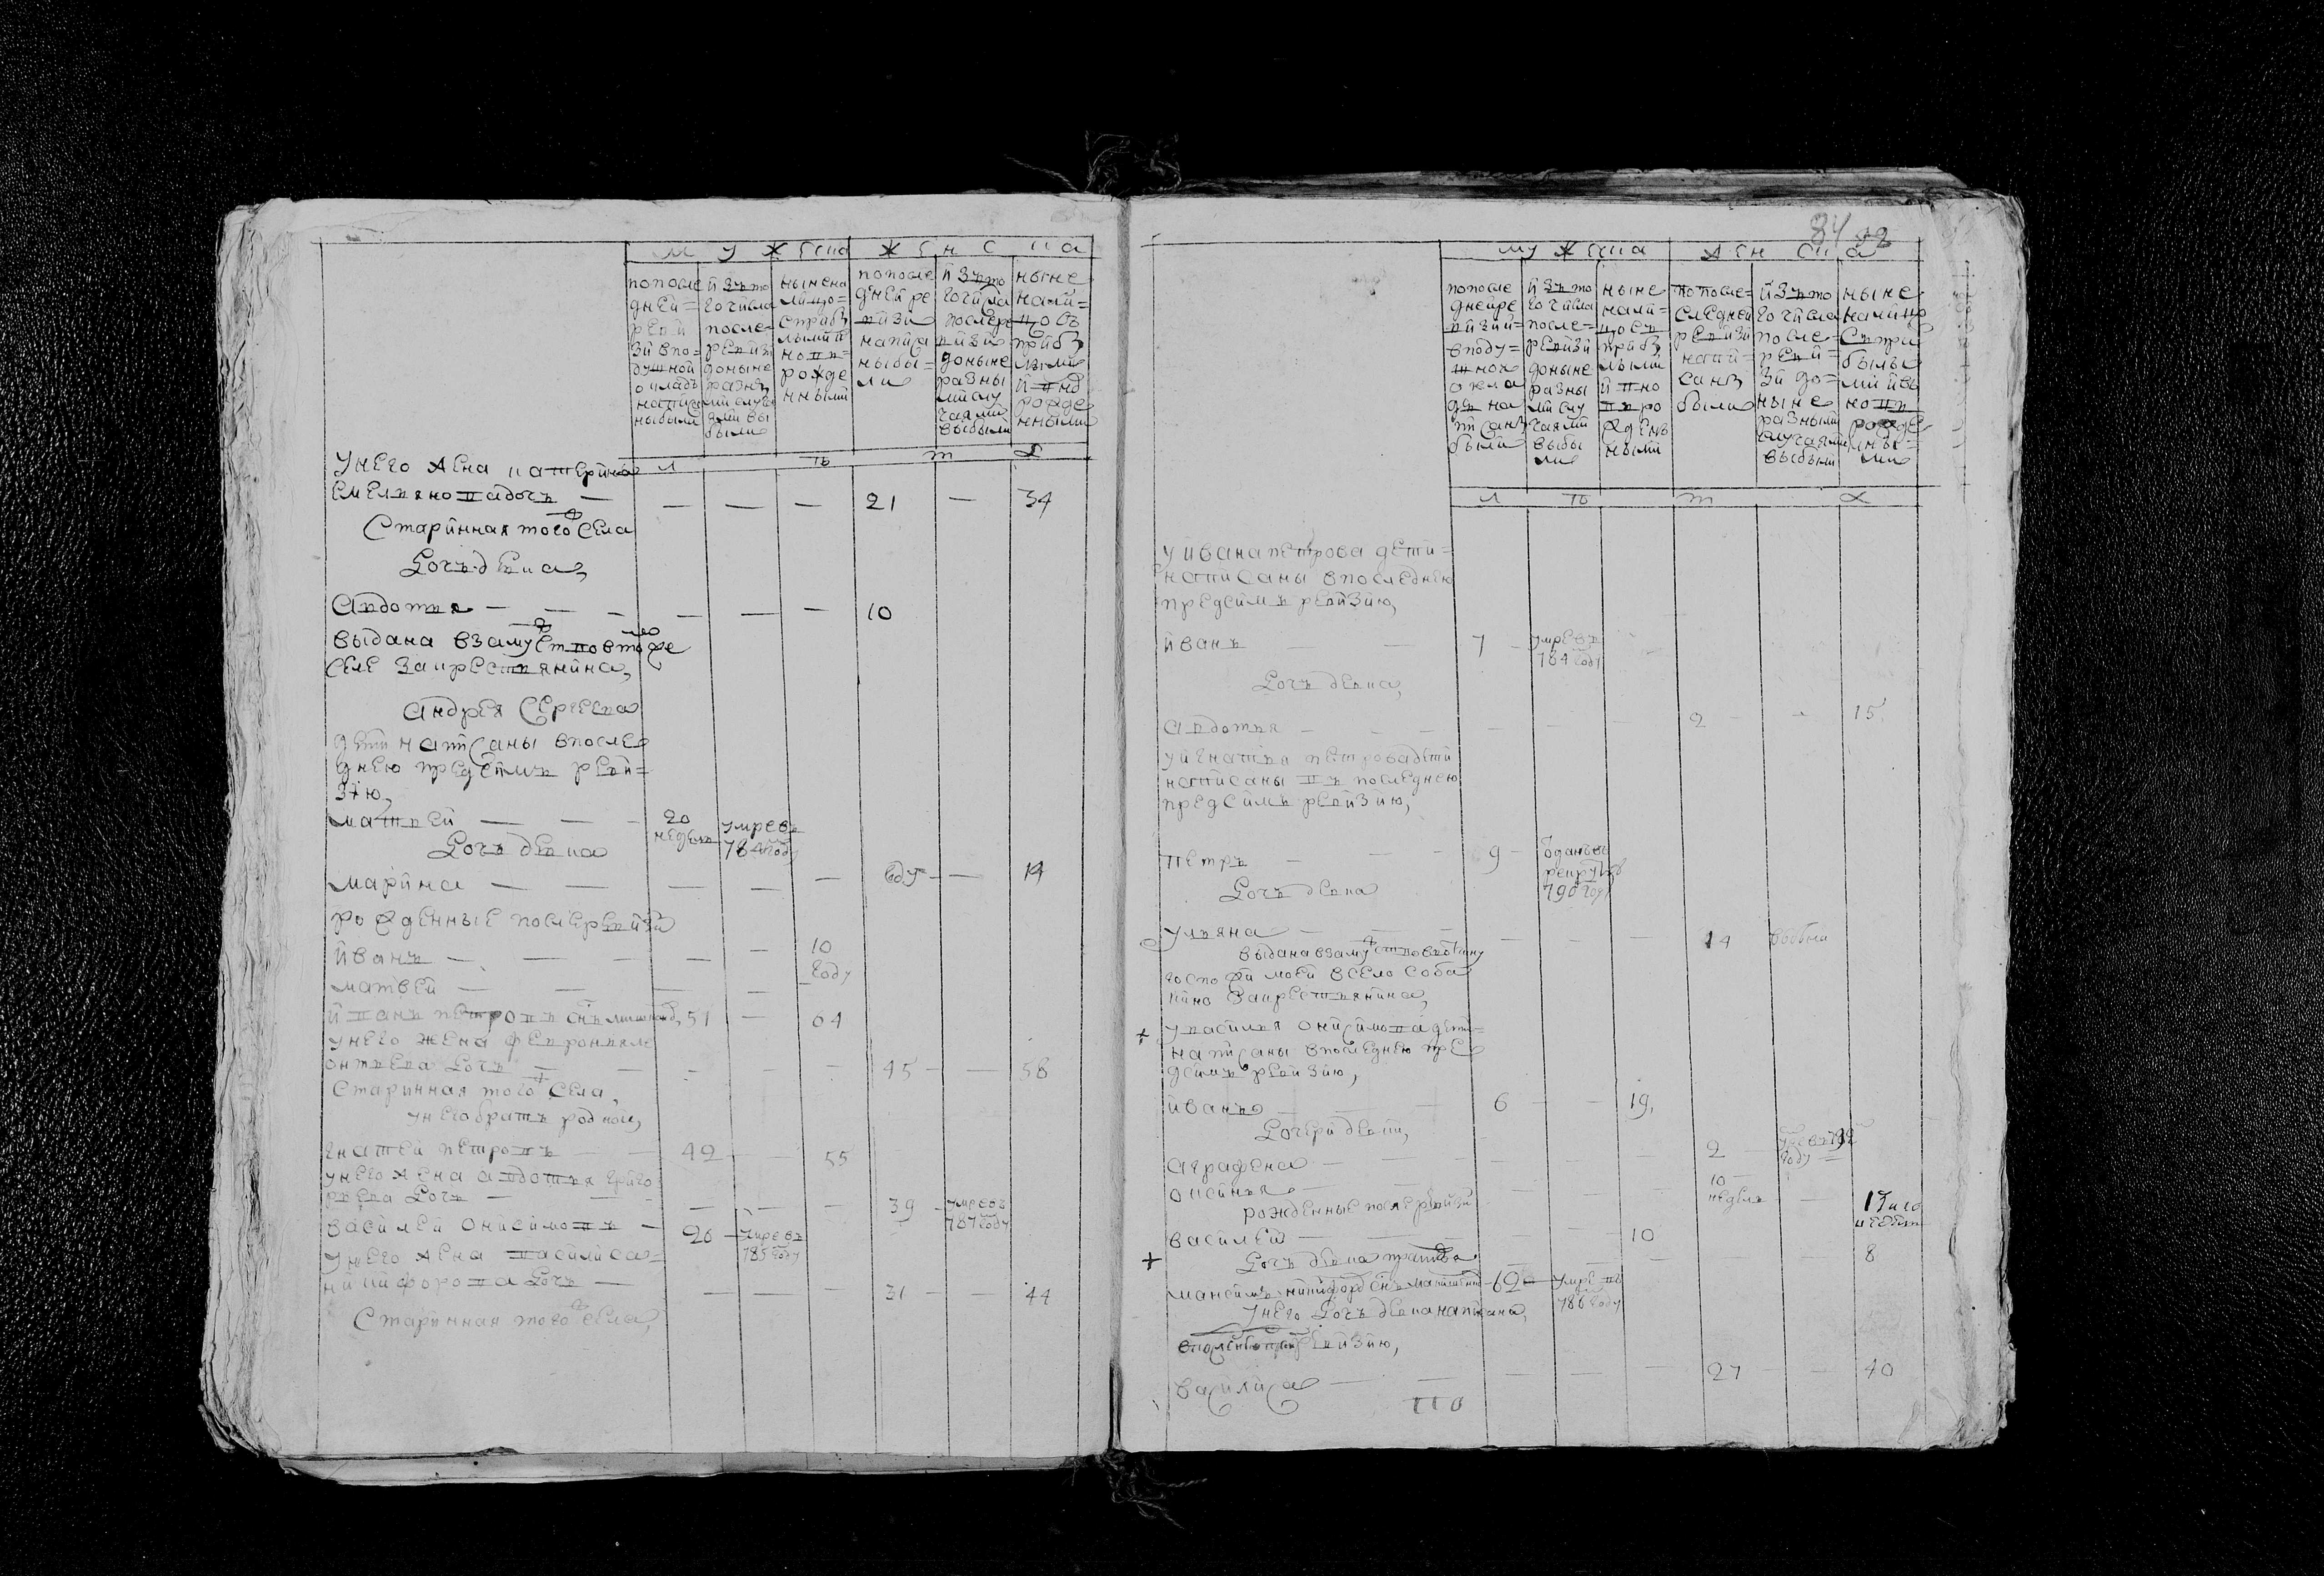 мужеска женска
по после
дней
ревизи
зи в по
душной
окладъ
написа
ны были
изъ то
го числа
после
ревизи
до ныне
разны
ми случа
ями вы
были
ныне на
лицо
с прибы
лыми и
новорожде
нными
по после
дней ре
визи
написа
ны бы
ли
изъ то
го числа
после ре
визи
до ныне
разны
ми слу
чаями
выбыли
ныне
нали
цо съ
прибы
лыми
и ново
рожде
нными
лѣта
у него жена катерина
емельянова дочь — — — — 21 — 34
старинная того ж села
дочь девка
авдотья — — — — — — 10
выдана в замужество в том же
селе за крестьянина
андрея сергеева
дети написаны в после
днею пред симъ реви
зию,
матвей — — — 20 недель умре въ 784 году
дочь девка
марина — — — — — году — 14
рожденные после ревизи
иванъ — — — — — 10
матвей — — — — — году
иванъ петровъ сынъ 51 — 64
у него жена февронья ле
онтьева дочь — — — — — 45 — — 58
старинная того ж села,
у него братъ родной,
игнатей петровъ — — 42 — — 55
у него жена авдотья григо
рьева дочь — — — — — 39 — умре въ 787 году
василей онисимовъ — 26 — умре въ 785 году
у него жена василиса
никифорова дочь — — — — 31 — — 44
старинная того ж села,
84 92
мужеска женска
по после
дней ре
визии
в поду
шной
окла
де на
писаны
были
изъ то
го числа
после
ревизи
до ныне
разны
ми слу
чаями
выбы
ли
ныне
нали
цо съ
прибы
лыми
и но
воро
жден
ными
по после
следней
ревизи
напи
саны
были
изъ то
го числа
после
реви
зи до
ныне
разными
случаями
выбыли
ныне
налицо
с при
былы
ми и съ
ново
рожде
нны
ми
лѣта
у ивана петрова дети
написаны в последнею
пред симъ ревизию,
иванъ — — 7 — умре въ 784 году
дочь девка,
авдотья — — — — — — 2 — — 15
у игнатья петрова дети
написаны въ последнею
пред симъ ревизию,
петръ — — — 9 — отданъ въ рекруты в 790 году
дочь девка
ульяна — — — — — — 14 выбыла
выдана в замужество в вотчину
госпожи моей в село соба
кино за крестьянина,
у василья онисимова дети
написаны в последнею пре
д симъ ревизию,
иванъ — — — 6 — — 19
дочери девки,
аграфена — — — — — 2 — умре въ году
аксинья — — — — — 10 недель — 13
рожденные после ревизи
василей — — — — — 10
дочь девка — — — 8
максимъ никифоровъ сынъ — 62 — умре въ 786 году
у него дочь девка написана
ревизию,
василиса — — — — — 27 — — 40